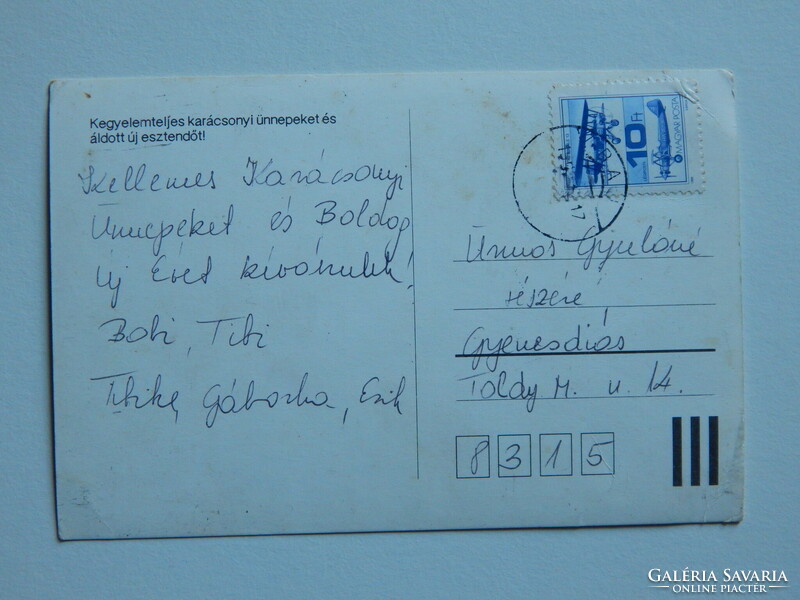 Kegyelemteljes karácsonyi ünnepeket és
áldott új esztendőt!
Kellemes Karácsonyi
Ünnepeket és Boldog
Új Évet kívánunk!
Bobi, Tibi
Tibike, Gáborka, Esik
10 Ft
MAGYAR POSTA
17
Gyuláné
részére
Gyenesdiás
Toldy M. u. 14.
8315
GALÉRIA SAVARIA
ONLINE PIACTÉR